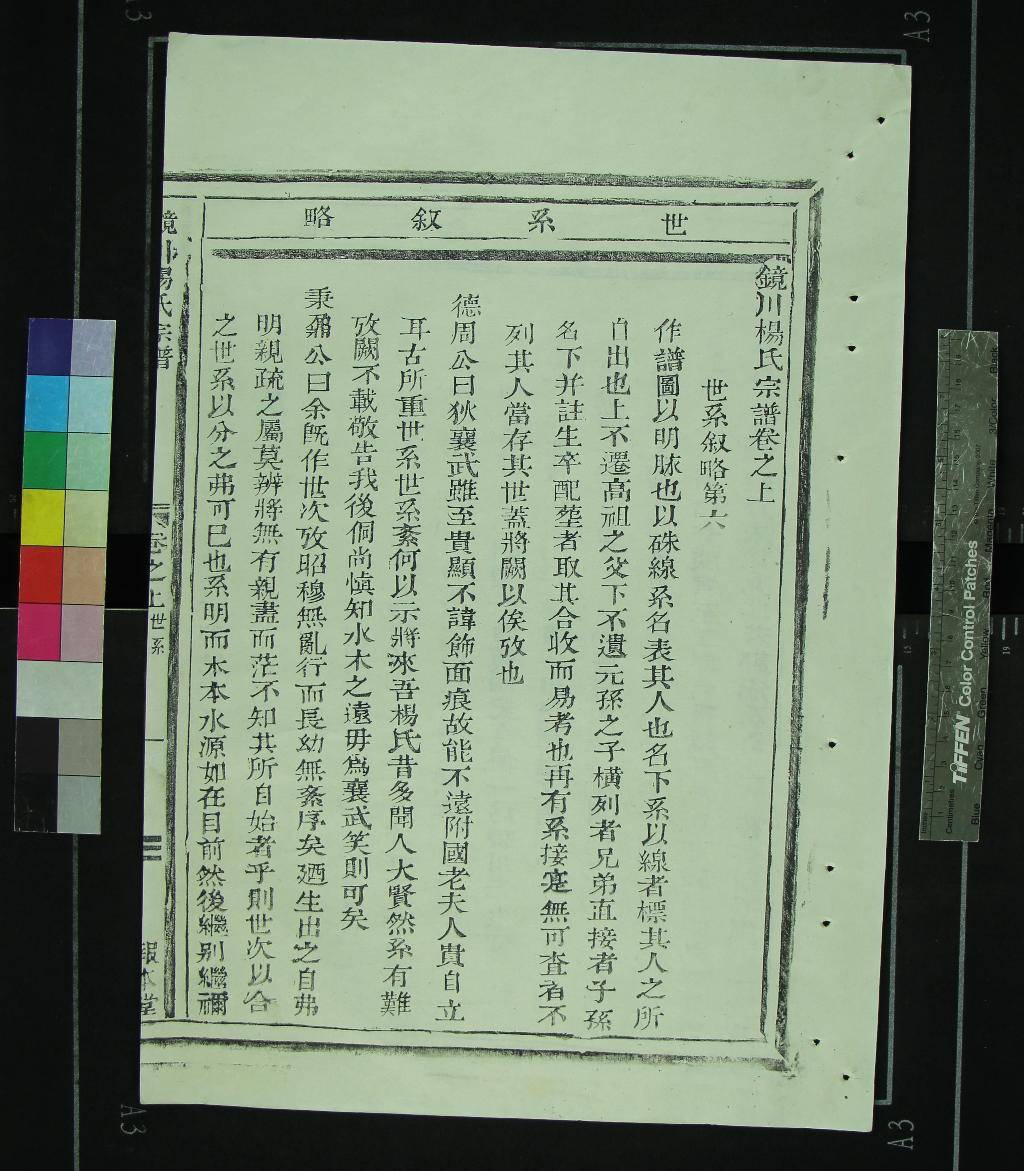 世系叙略
鏡川楊氏宗譜卷之上
世系叙略第六
作譜圖以明脉也以硃線系名表其人也名下系以線者標其人之所
自出也上不遷高祖之父下不遺元孫之子橫列者兄弟直接者子孫
名下并註生卒配塟者取其合收而易考也再有系接寔無可查者不
列其人當存其世蓋將闕以俟攷也
德周公曰狄襄武雖至貴顯不諱飾面痕故能不遠附國老夫人貴自立
耳古所重世系世系紊何以示將來吾楊氏昔多聞人大賢然系有難
攷闕不載敬告我後侗尚慎知水木之遠毋爲襄武笑則可矣
秉鼐公曰余旣作世次攷昭穆無亂行而長幼無紊序矣廼生出之自弗
明親疏之屬莫辨將無有親盡而茫不知其所自始者乎則世次以合
之世系以分之弗可已也系明而木本水源如在目前然後繼别繼禰
鏡川楊氏宗譜
卷之上世系
報本堂
A3
A3
A3
A3
TIFFEN Color Control Patches
Centimetres
Blue
Green
Yellow
Red
Magenta
White
3/Color
Black